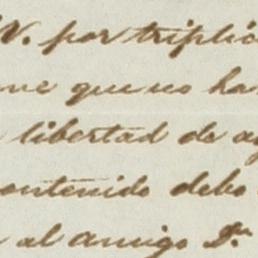 V. por triplic
me que no ha
libertad de a
contenido debo
al amigo Dn.